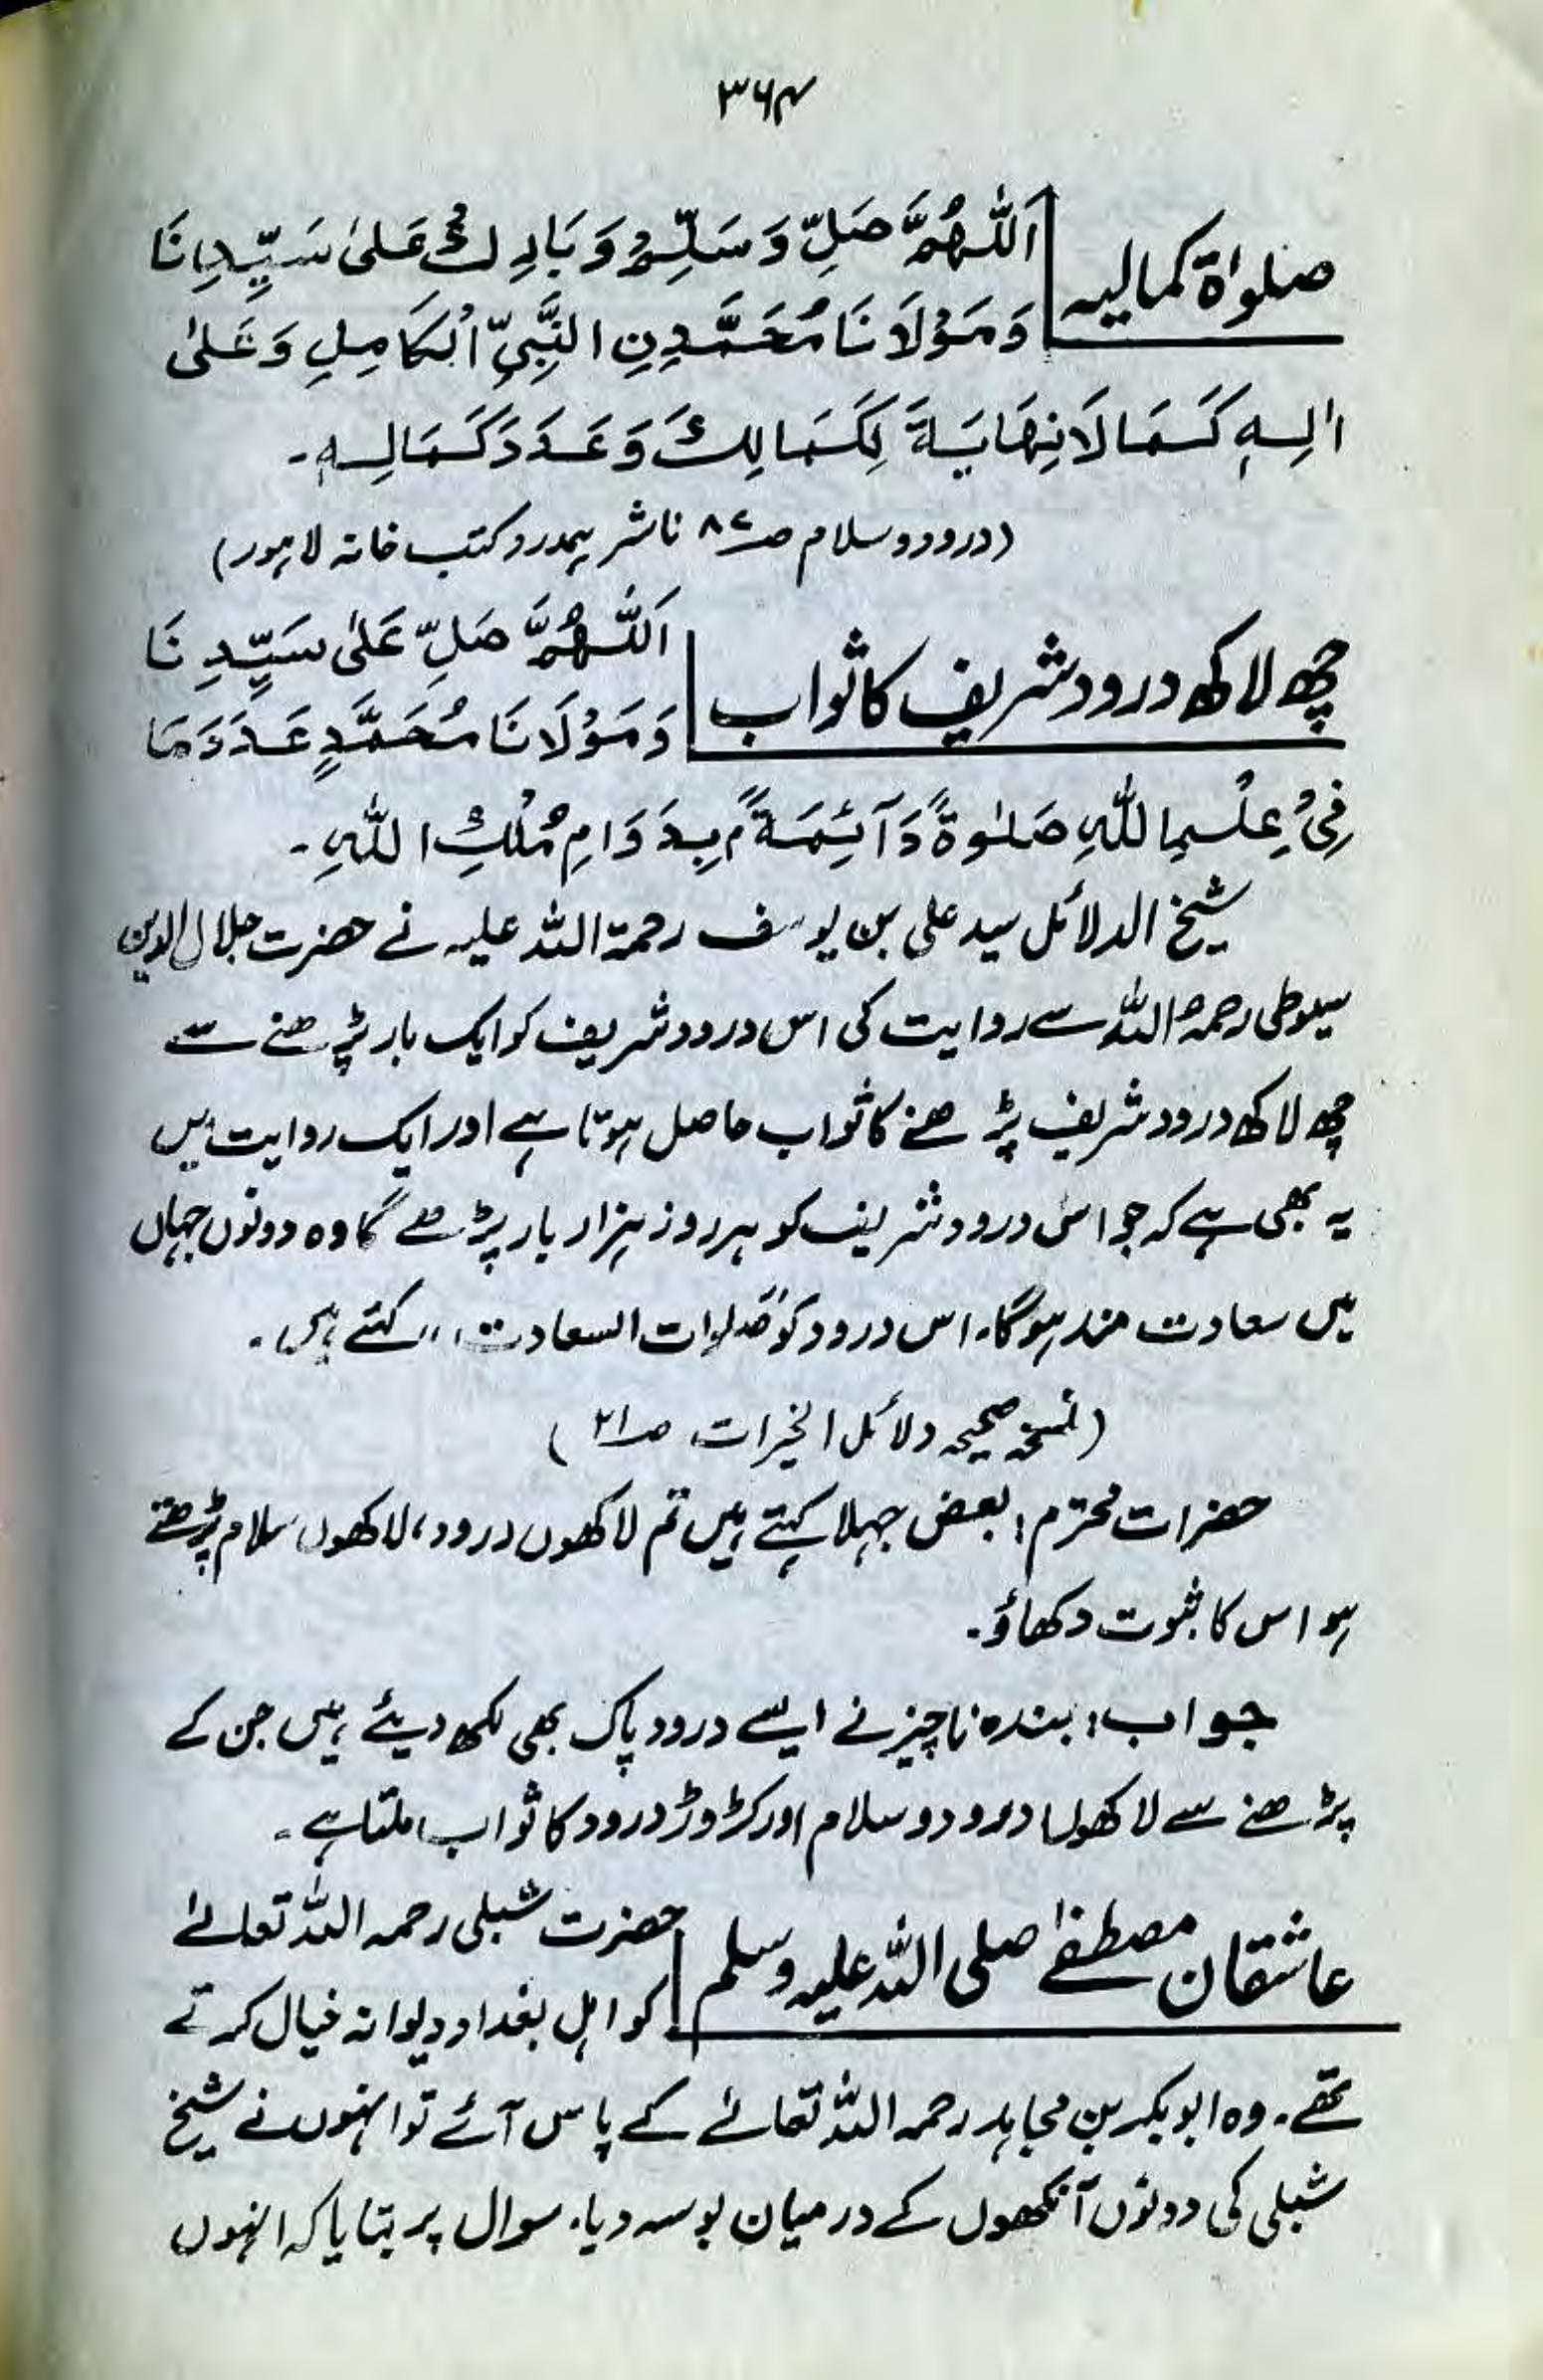 ۳۶۴
صلوٰۃ کمالیہ
اَللّٰهُمَّ صَلِّ وَسَلِّمْ وَبَارِكْ عَلىٰ سَيِّدِنَا
وَمَوْلَانَا مُحَمَّدِنِ النَّبِيِّ الْكَامِلِ وَعَلىٰ
اٰلِهٖ كَمَا لَا نِهَايَةَ لِكَمَالِكَ وَعَدَدَ كَمَالِهٖ۔
(درود و سلام صـ۸۷ ناشر ہمدرد کتب خانہ لاہور)
چھ لاکھ درود شریف کا ثواب
اَللّٰهُمَّ صَلِّ عَلىٰ سَيِّدِنَا
وَمَوْلَانَا مُحَمَّدٍ عَدَدَ مَا
فِيْ عِلْمِ اللّٰهِ صَلٰوةً دَآئِمَةً ۢ بِدَوَامِ مُلْكِ اللّٰهِ۔
شیخ الدلائل سید علی بن یوسف رحمۃ اللہ علیہ نے حضرت جلال الدین
سیوطی رحمۃ اللہ سے روایت کی اس درود شریف کو ایک بار پڑھنے سے
چھ لاکھ درود شریف پڑھنے کا ثواب حاصل ہوتا ہے اور ایک روایت میں
یہ بھی ہے کہ جو اس درود شریف کو ہر روز ہزار بار پڑھے گا وہ دونوں جہاں
میں سعادت مند ہوگا۔ اس درود کو "صلوات السعادت" کہتے ہیں۔
(نسخہ صحیحہ دلائل الخیرات، صـ۲۱)
حضرات محترم: بعض جہلا کہتے ہیں تم لاکھوں درود، لاکھوں سلام پڑھتے
ہو اس کا ثبوت دکھاؤ۔
جواب: بندہ ناچیز نے ایسے درود پاک بھی لکھ دیئے ہیں جن کے
پڑھنے سے لاکھوں درود و سلام اور کڑوڑ درود کا ثواب ملتا ہے۔
عاشقان مصطفےٰ صلی اللہ علیہ وسلم
حضرت شبلی رحمہ اللہ تعالےٰ
کو اہل بغداد دیوانہ خیال کرتے
تھے۔ وہ ابوبکر بن مجاہد رحمہ اللہ تعالےٰ کے پاس آئے تو انہوں نے شیخ
شبلی کی دونوں آنکھوں کے درمیان بوسہ دیا۔ سوال پر بتایا کہ انہوں